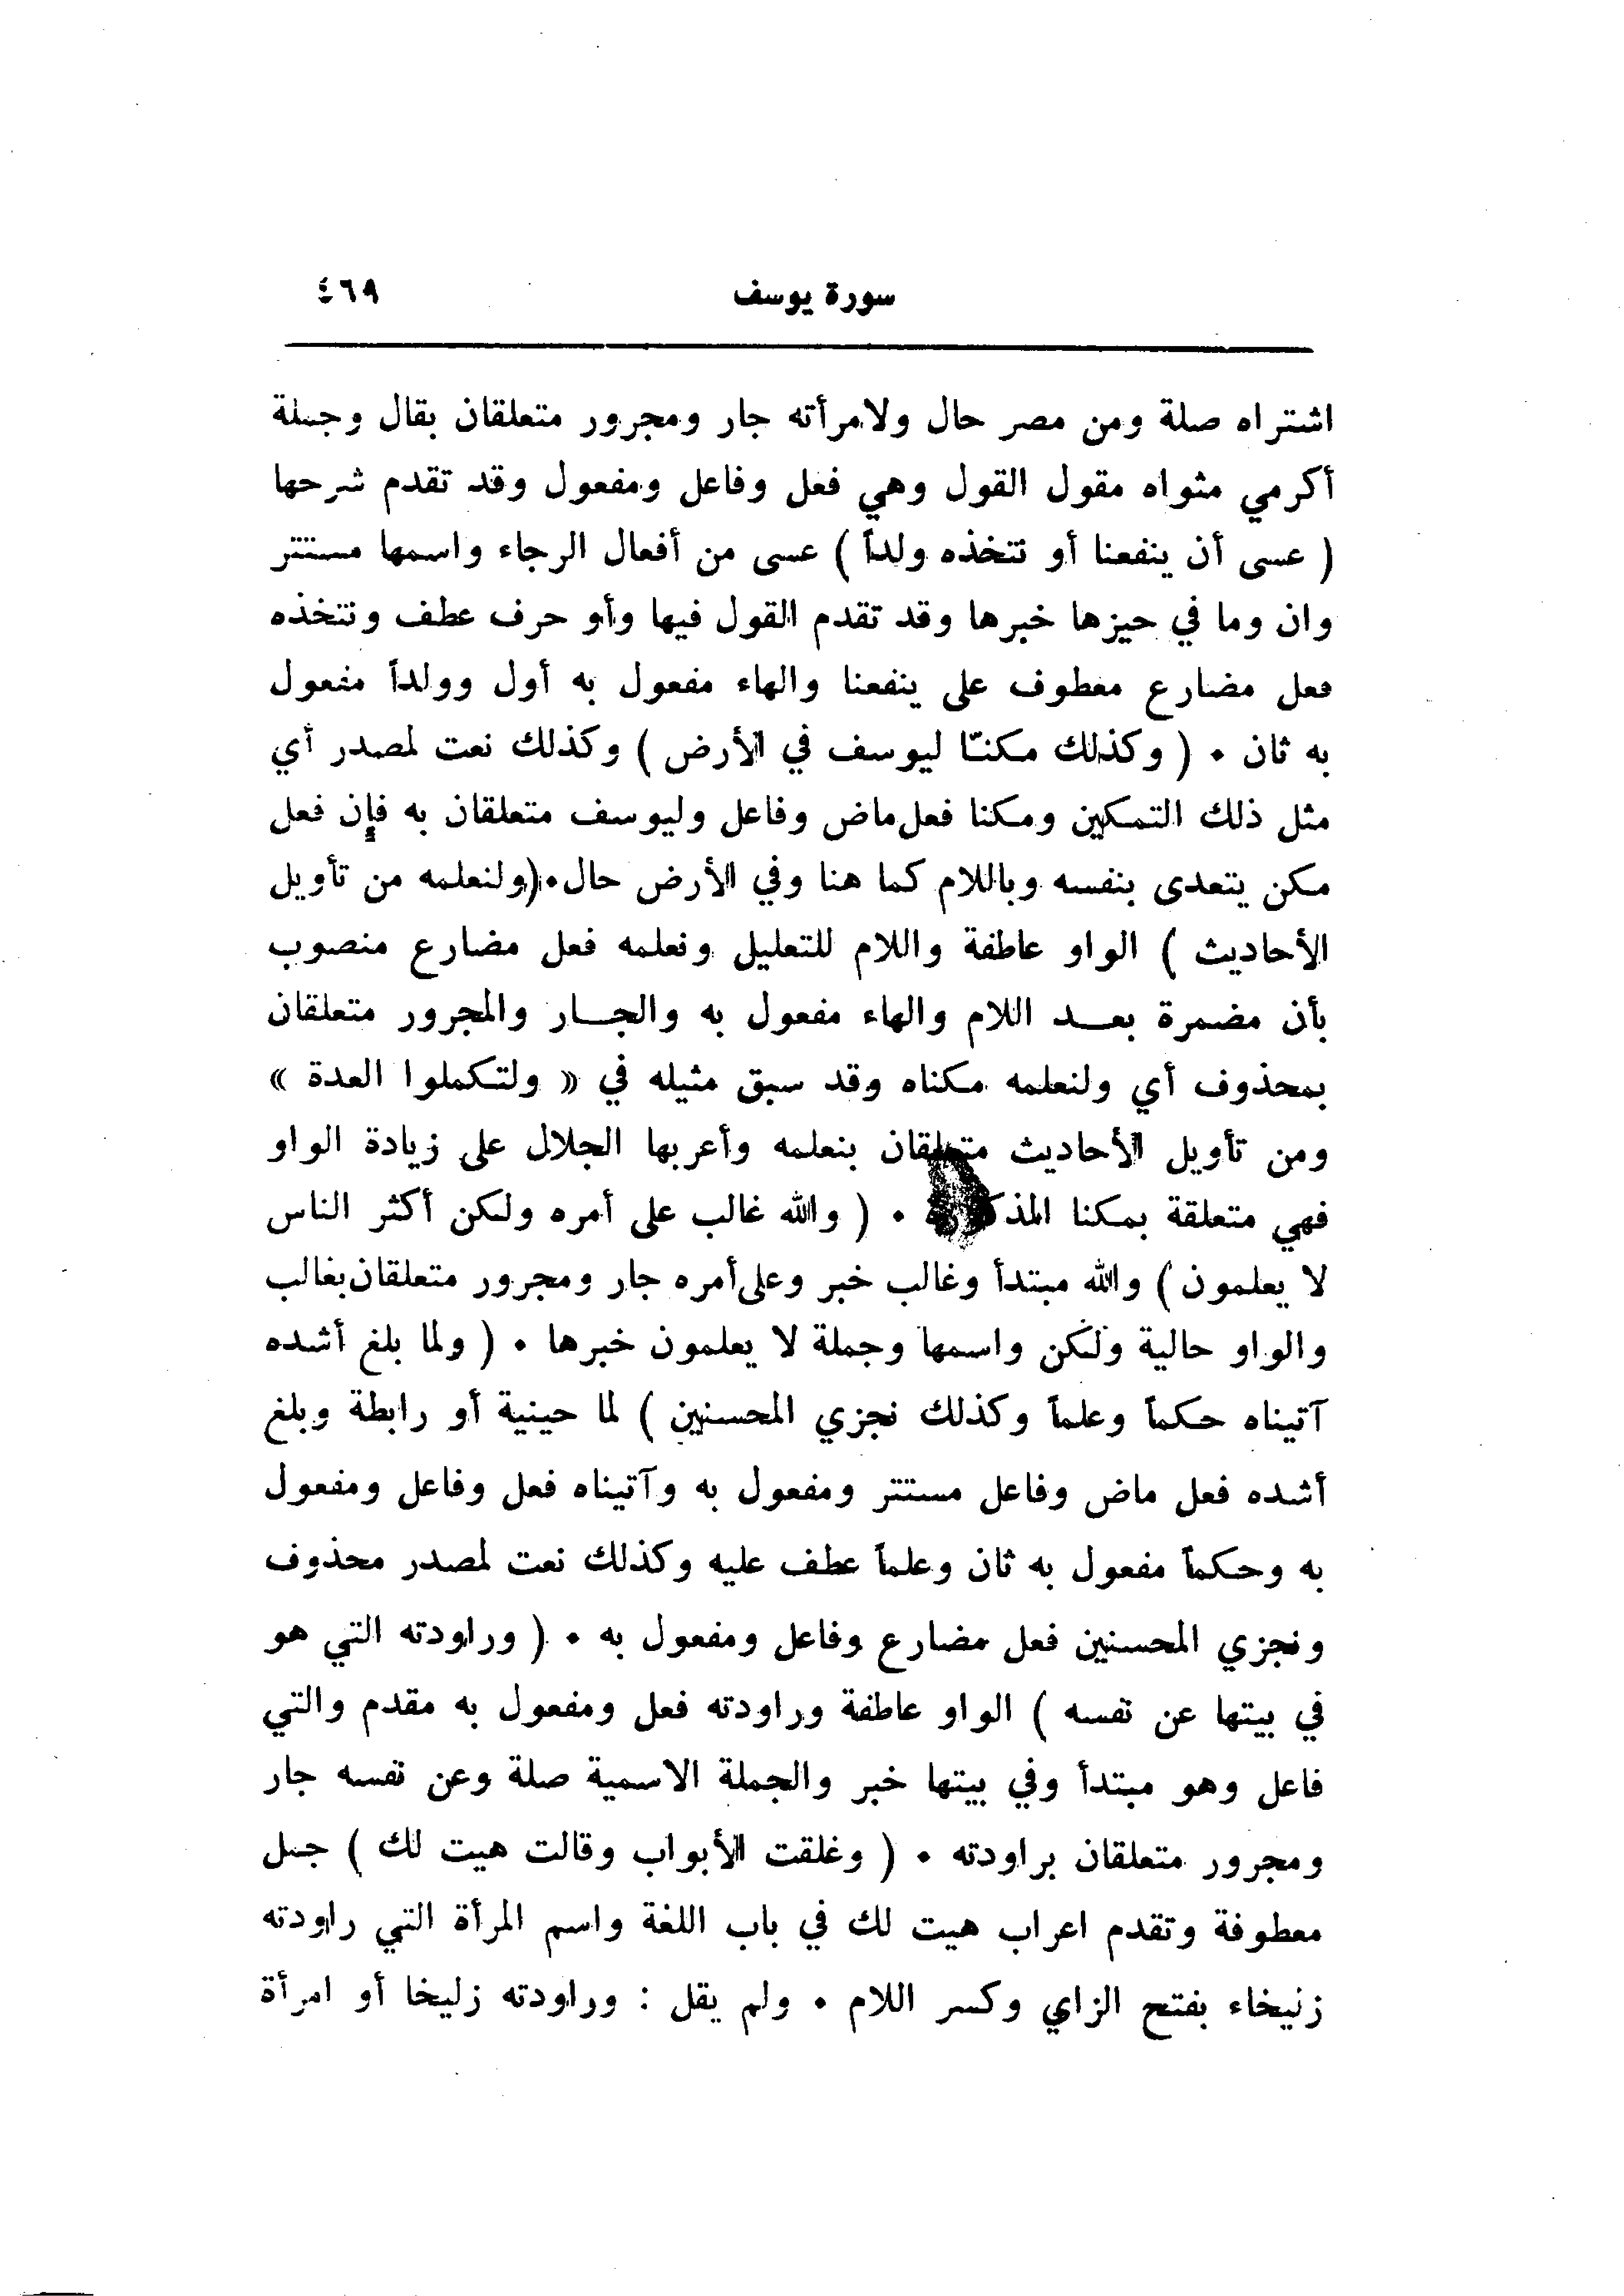 سورة يوسف ٤٦٩
اشتراه صلة ومن مصر حال ولامرأته جار ومجرور متعلقان بقال وجملة
أكرمي مثواه مقول القول وهي فعل وفاعل ومفعول وقد تقدم شرحها
( عسى أن ينفعنا أو نتخذه ولداً ) عسى من أفعال الرجاء واسمها مستتر
وان وما في حيزها خبرها وقد تقدم القول فيها وأو حرف عطف ونتخذه
فعل مضارع معطوف على ينفعنا والهاء مفعول به أول وولداً مفعول
به ثان • ( وكذلك مكنّا ليوسف في الأرض ) وكذلك نعت لمصدر أي
مثل ذلك التمكين ومكنا فعل ماض وفاعل وليوسف متعلقان به فإن فعل
مكن يتعدى بنفسه وباللام كما هنا وفي الأرض حال•(ولنعلمه من تأويل
الأحاديث ) الواو عاطفة واللام للتعليل ونعلمه فعل مضارع منصوب
بأن مضمرة بعــد اللام والهاء مفعول به والجــار والمجرور متعلقان
بمحذوف أي ولنعلمه مكناه وقد سبق مثيله في « ولتكملوا العدة »
ومن تأويل الأحاديث متعلقان بنعلمه وأعربها الجلال على زيادة الواو
فهي متعلقة بمكنا • ( والله غالب على أمره ولكن أكثر الناس
لا يعلمون ) والله مبتدأ وغالب خبر وعلى أمره جار ومجرور متعلقان بغالب
والواو حالية ولكن واسمها وجملة لا يعلمون خبرها • ( ولما بلغ أشده
آتيناه حكماً وعلماً وكذلك نجزي المحسنين ) لما حينية أو رابطة وبلغ
أشده فعل ماض وفاعل مستتر ومفعول به وآتيناه فعل وفاعل ومفعول
به وحكماً مفعول به ثان وعلماً عطف عليه وكذلك نعت لمصدر محذوف
ونجزي المحسنين فعل مضارع وفاعل ومفعول به • ( وراودته التي هو
في بيتها عن نفسه ) الواو عاطفة وراودته فعل ومفعول به مقدم والتي
فاعل وهو مبتدأ وفي بيتها خبر والجملة الاسمية صلة وعن نفسه جار
ومجرور متعلقان براودته • ( وغلقت الأبواب وقالت هيت لك ) جمل
معطوفة وتقدم اعراب هيت لك في باب اللغة واسم المرأة التي راودته
زليخاء بفتح الزاي وكسر اللام • ولم يقل : وراودته زليخا أو امرأة